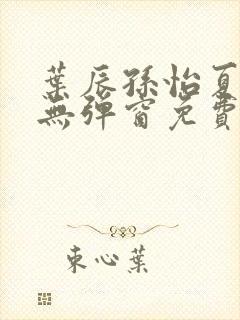 葉辰孫怡夏
無彈窗免費
束心葉